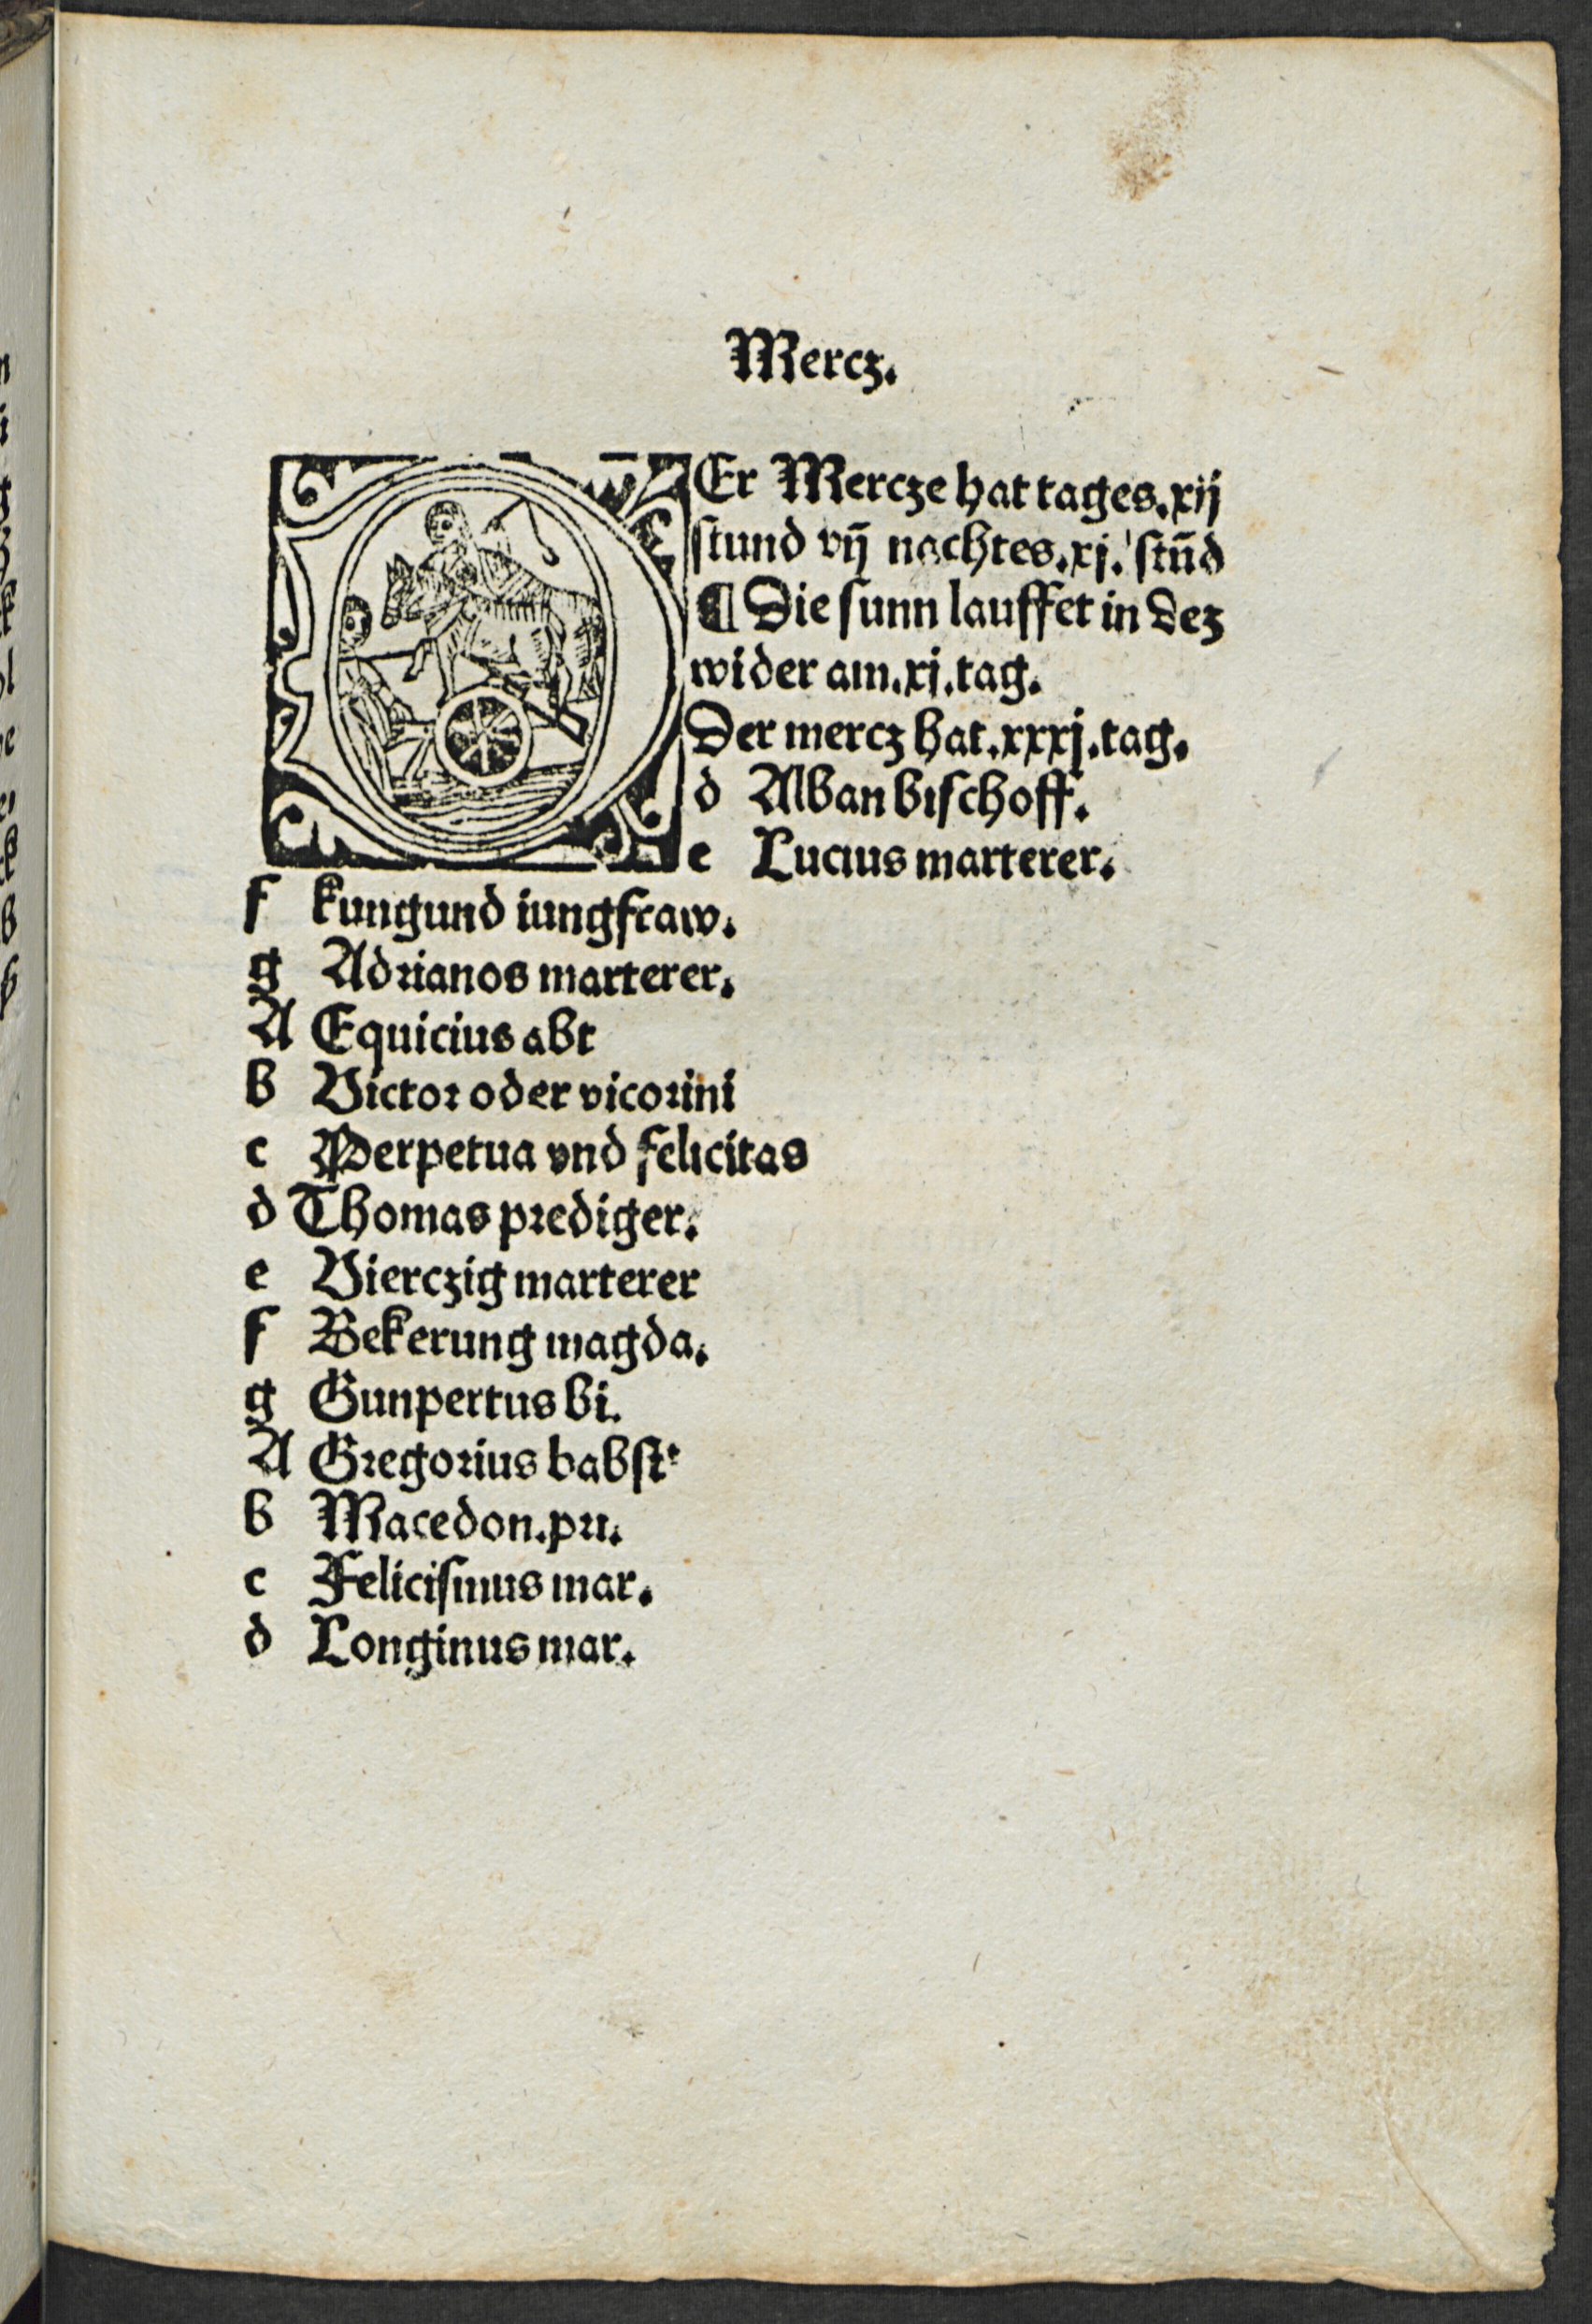 Mercz.
DEr Mercze hat tages.xij
stund vn̄ nachtes.xj. stūd
¶ Die sunn lauffet in dez
wider am.xj.tag.
Der mercz hat.xxxj.tag.
d Alban bischoff.
e Lucius marterer.
f kungund iungfraw.
g Adrianos marterer.
A Equicius abt
b Victor oder vicorini
c Perpetua vnd felicitas
d Thomas prediger.
e Vierczig marterer
f Bekerung magda.
g Gunpertus bi.
A Gregorius babst
b Macedon.pri.
c Felicismus mar.
d Longinus mar.